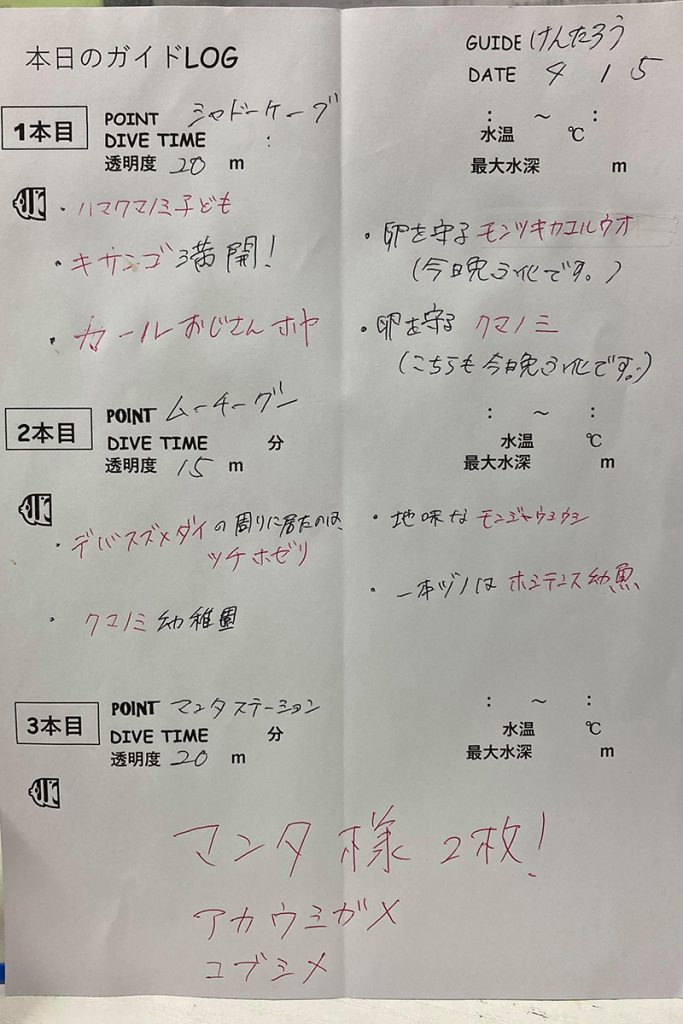 本日のガイドLOG
GUIDE けんたろう
DATE 4 15
1本目
POINT シャドーケーブ
DIVE TIME :
透明度 20 m
: ～ :
水温 ℃
最大水深 m
・ハマクマノミ子ども
・キサンゴ満開!
・カールおじさんホヤ
・卵を守る モンツキカエルウオ
(今日晩ふ化です。)
・卵を守る クマノミ
(こちらも今日晩ふ化です。)
2本目
POINT ムーチーグン
DIVE TIME 分
透明度 15 m
: ～ :
水温 ℃
最大水深 m
・デバスズメダイの周りに居たのは、
ツチホゼリ
・クマノミ幼稚園
・地味なモンジャウミウシ
・一本ヅノはホシテンス幼魚
3本目
POINT マンタステーション
DIVE TIME 分
透明度 20 m
: ～ :
水温 ℃
最大水深 m
マンタ様 2枚!
アカウミガメ
コブシメ